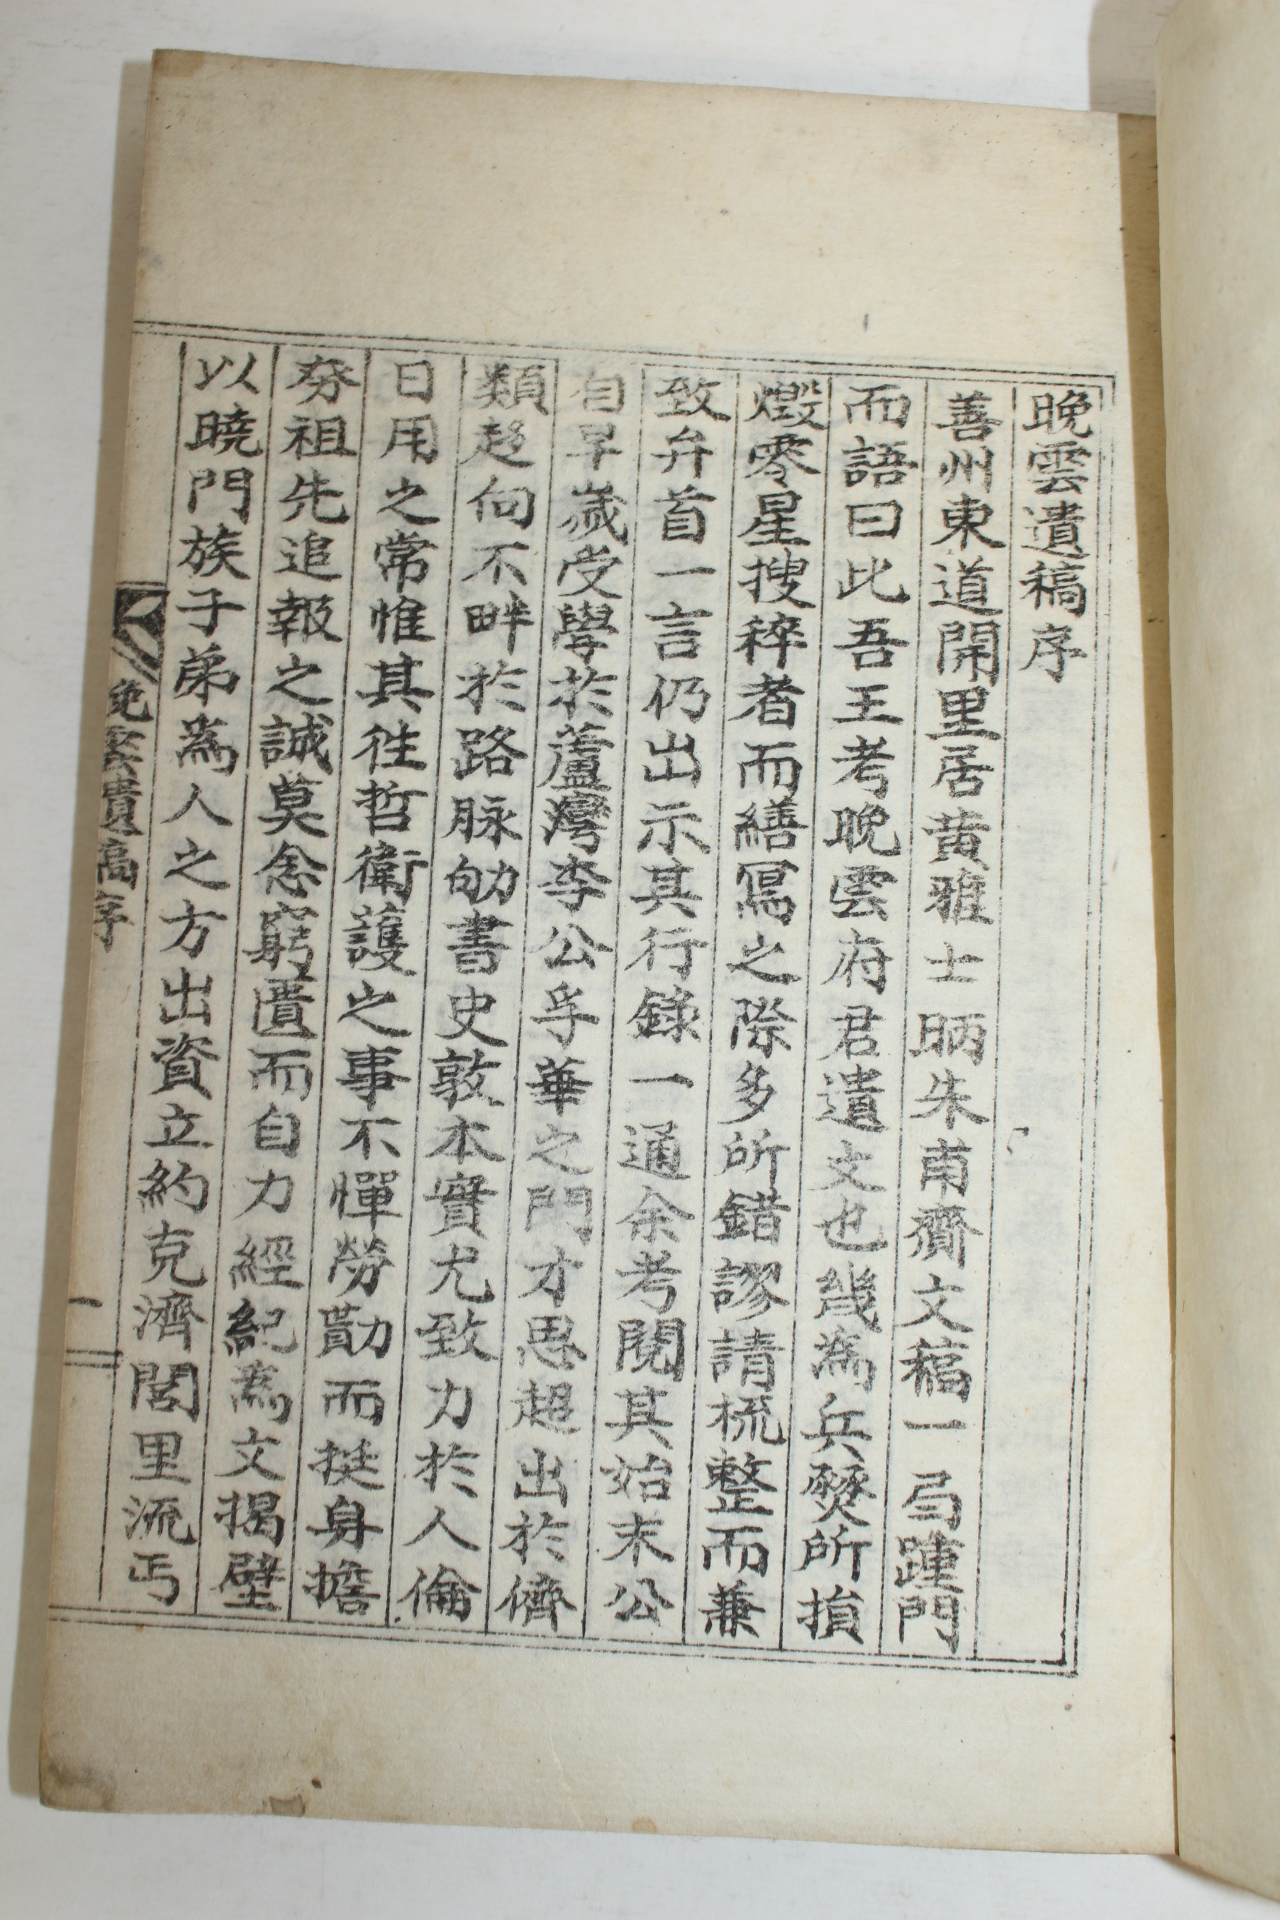 晩雲遺稿序
善州東道開里居黃雅士昞朱甫齎文稿一弓踵門
而語曰此吾王考晩雲府君遺文也幾爲兵燹所損
燬零星搜稡者而繕冩之際多所錯謬請梳整而兼
致弁首一言仍出示其行錄一通余考閱其始末公
自早歲受學於蘆灣李公孚華之門才思超出於儕
類趍向不畔於路脉劬書史敦本實尤致力於人倫
日用之常惟其徃哲衛護之事不憚勞勩而挺身擔
夯祖先追報之誠莫念窮匱而自力經紀爲文揭壁
以曉門族子弟爲人之方出資立約克濟閭里流丐
晩雲遺稿序
一